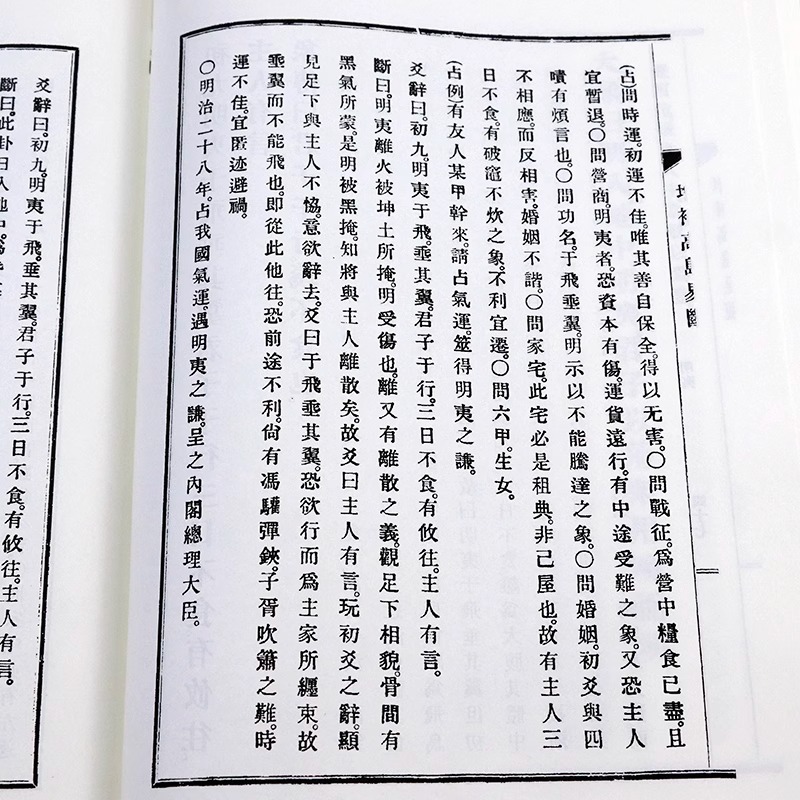 增補高島易斷
(占)問時運。初運不佳。唯其善自保全。得以无害。〇問戰征。爲營中糧食已盡。且
宜暫退。〇問營商。明夷者。恐資本有傷。運貨遠行。有中途受難之象。又恐主人
嘖有煩言也。〇問功名。于飛垂翼。明示以不能騰達之象。〇問婚姻。初爻與四
不相應。而反相害。婚姻不諧。〇問家宅。此宅必是租典。非己屋也。故有主人三
日不食。有破竈不炊之象。不利宜遷。〇問六甲。生女。
(占例)有友人某甲幹來。請占氣運。筮得明夷之謙。
爻辭曰。初九。明夷于飛。垂其翼。君子于行。三日不食。有攸往。主人有言。
斷曰。明夷離火被坤土所掩。明受傷也。離又有離散之義。觀足下相貌。骨間有
黑氣所蒙。是明被黑掩。知將與主人離散矣。故爻曰主人有言。玩初爻之辭。顯
見足下與主人不恊。意欲辭去。爻曰于飛垂其翼。恐欲行而爲主家所纒束。故
垂翼而不能飛也。即從此他往。恐前途不利。尙有馮驩彈鋏。子胥吹簫之難。時
運不佳。宜匿迹避禍。
〇明治二十八年。占我國氣運。遇明夷之謙。呈之內閣總理大臣。
爻辭曰。初九。明夷于飛。垂其翼。君子于行。三日不食。有攸往。主人有言。
斷曰。此卦日入地中。